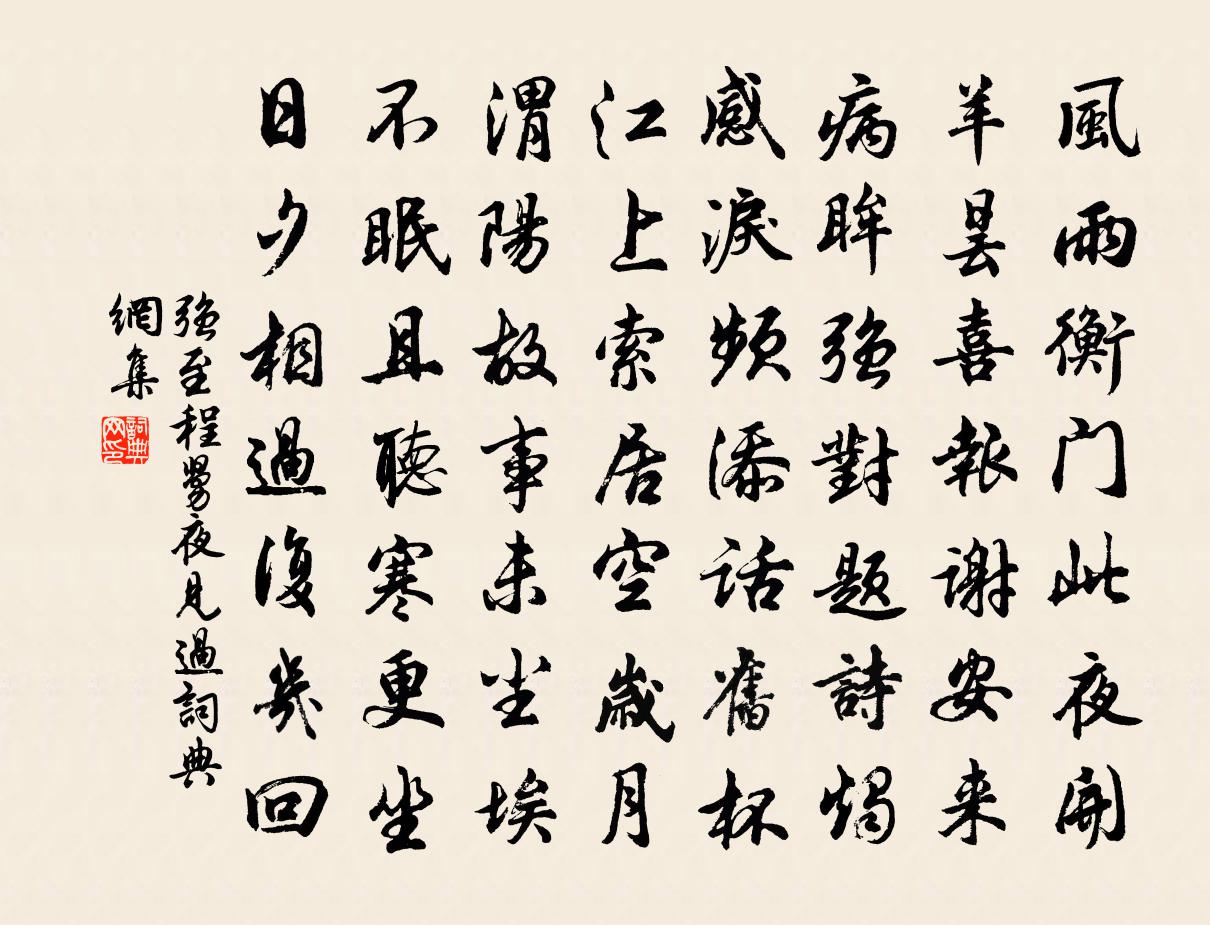 風雨衡门此夜開
羊曇喜報谢安来
病眸强對题詩燭
感淚頻添话舊杯
江上索居空歲月
渭陽故事未尘埃
不眠且聽寒更坐
日夕相過復幾回
强至程舅夜見過詞典
網集
詞典
网印